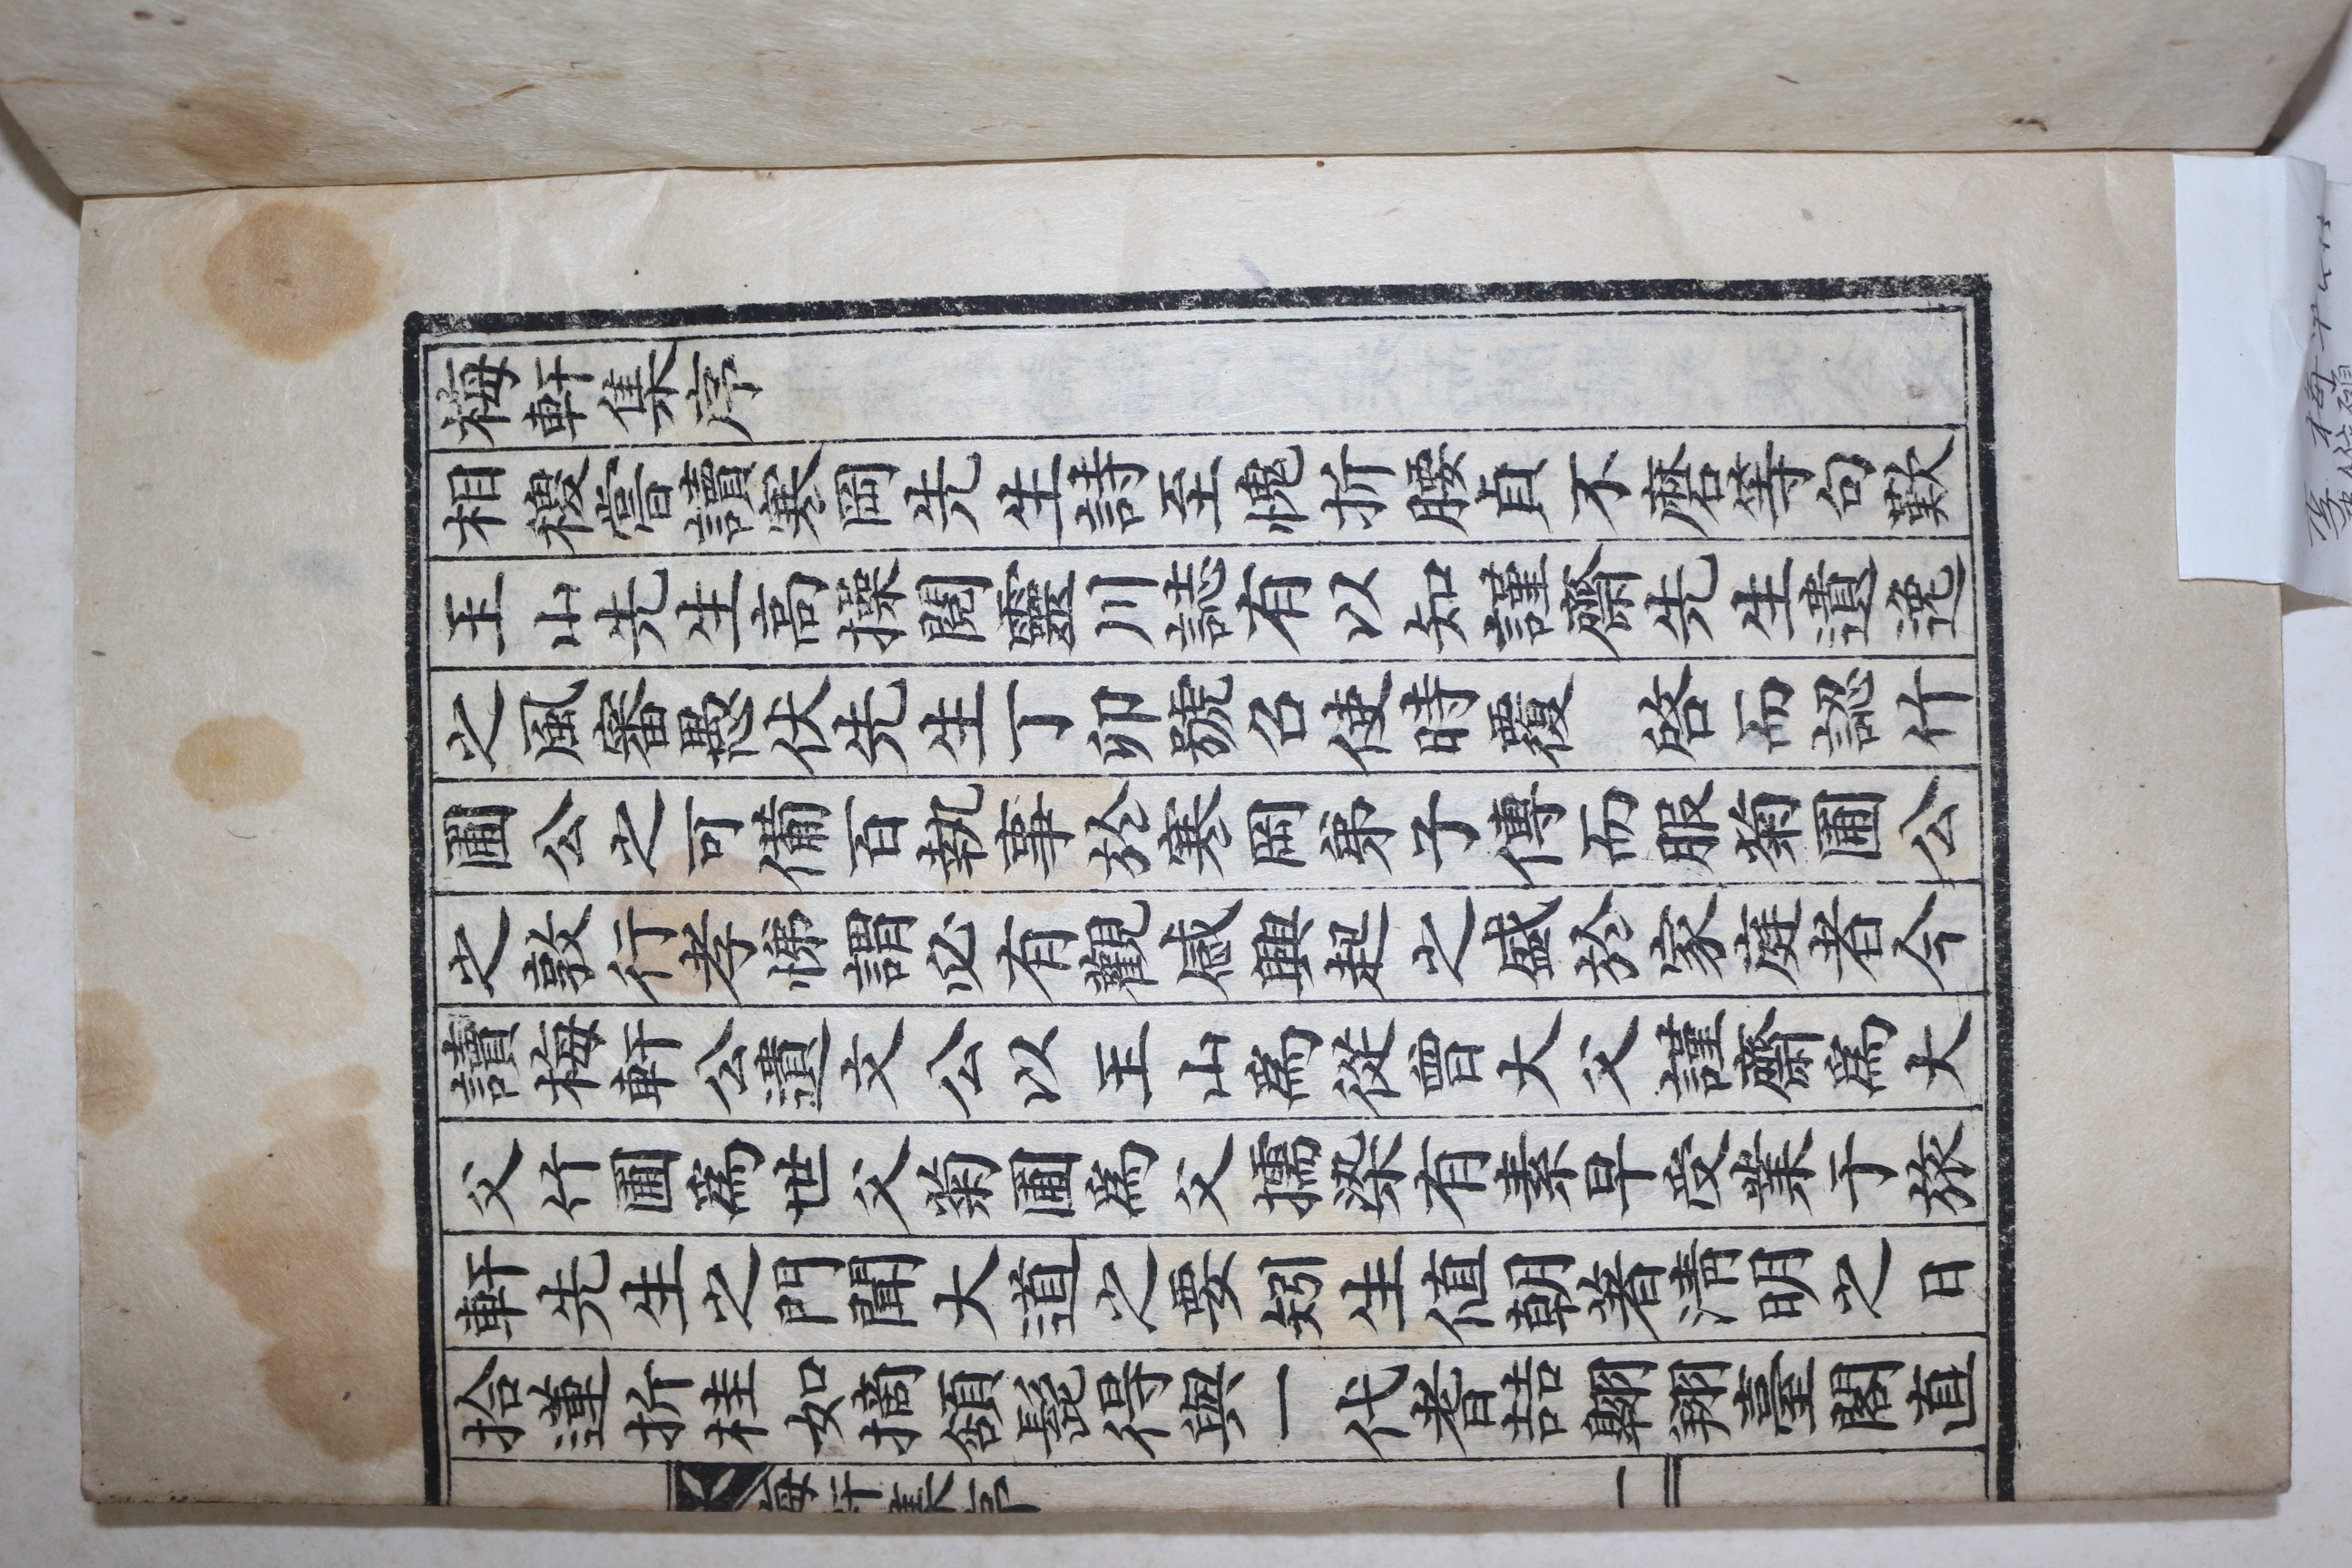 梅軒集序
相稷嘗讀寒岡先生詩至愧折腰貞不磨等句歎
王山先生高操閱靈川誌有以知謹齋先生遺逸
之風審愚伏先生丁卯號召使時覆 啓而認竹
圃公之可備百執事於寒岡弟子傳而服菊圃公
之敦行孝悌謂必有觀感興起之盛於家庭者今
讀梅軒公遺文公以王山爲從曾大父謹齋爲大
父竹圃爲世父菊圃爲父擩染有素早受業于旅
軒先生之門聞大道之要矧生値朝著淸明之日
拾蓮折桂如摘頷髭得與一代耆喆翺翔臺閣直
梅軒集序 一